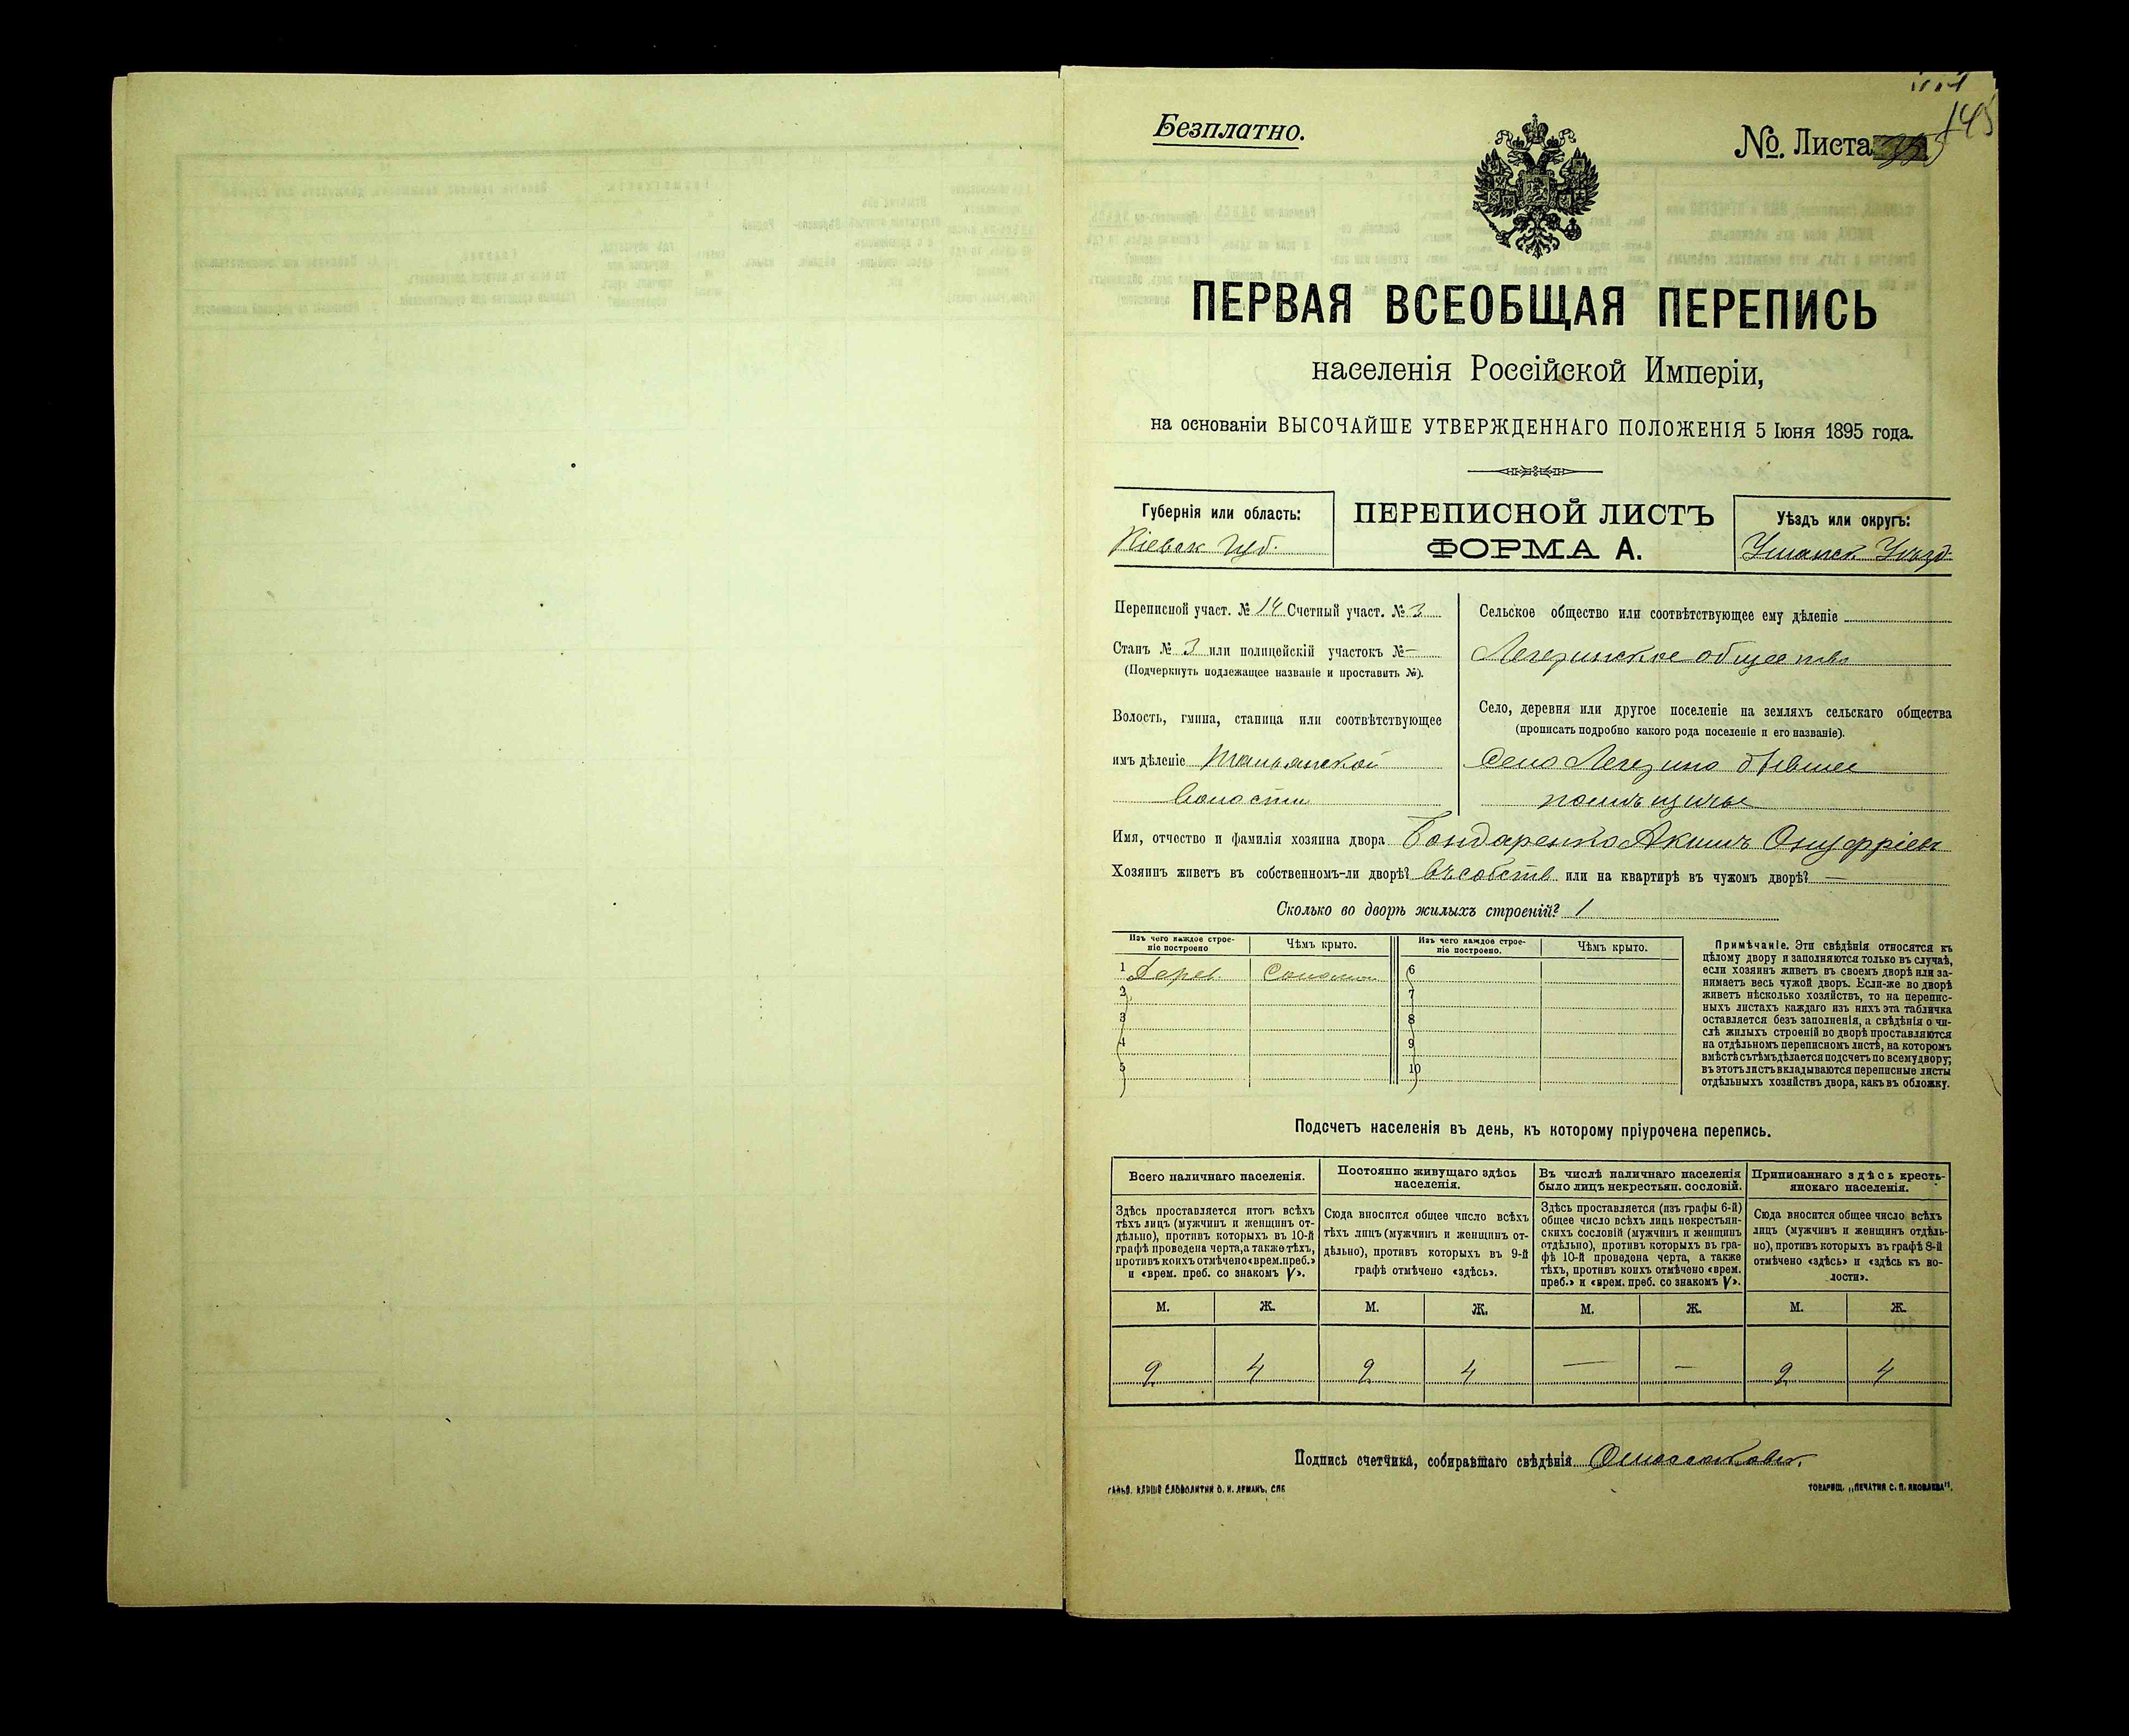 Безплатно.
№ Листа
145
ПЕРВАЯ ВСЕОБЩАЯ ПЕРЕПИСЬ
населенія Россійской Имперіи,
на основаніи ВЫСОЧАЙШЕ УТВЕРЖДЕННАГО ПОЛОЖЕНІЯ 5 Іюня 1895 года.
Губернія или область:
Кіевск Губ.
ПЕРЕПИСНОЙ ЛИСТЪ
ФОРМА А.
Уѣздъ или округъ:
Уманск Уѣзд
Переписной участ. № 14 Счетный участ. № 3
Станъ № 3 или полицейскій участокъ № —
(Подчеркнуть подлежащее названіе и проставить №).
Волость, гмина, станица или соотвѣтствующее
имъ дѣленіе Тальянской
волости
Сельское общество или соотвѣтствующее ему дѣленіе
Легезинское общество
Село, деревня или другое поселеніе на земляхъ сельскаго общества
(прописать подробно какого рода поселеніе и его названіе).
Село Легезино бывшее
помѣщичье
Имя, отчество и фамилія хозяина двора Бондаренко Акимъ Онуфріевъ
Хозяинъ живетъ въ собственномъ-ли дворѣ? въ собств или на квартирѣ въ чужомъ дворѣ? —
Сколько во дворѣ жилыхъ строеній? 1
Изъ чего каждое строе-
ніе построено
Чѣмъ крыто.
Изъ чего каждое строе-
ніе построено.
Чѣмъ крыто.
1 Дерев. Солома 6
2 7
3 8
4 9
5 10
Примѣчаніе. Эти свѣдѣнія относятся къ
цѣлому двору и заполняются только въ случаѣ,
если хозяинъ живетъ въ своемъ дворѣ или за-
нимаетъ весь чужой дворъ. Если-же во дворѣ
живетъ нѣсколько хозяйствъ, то на перепис-
ныхъ листахъ каждаго изъ нихъ эта табличка
оставляется безъ заполненія, а свѣдѣнія о чи-
слѣ жилыхъ строеній во дворѣ проставляются
на отдѣльномъ переписномъ листѣ, на которомъ
вмѣстѣ съ тѣмъ дѣлается подсчетъ по всему двору;
въ этотъ листъ вкладываются переписные листы
отдѣльныхъ хозяйствъ двора, какъ въ обложку.
Подсчетъ населенія въ день, къ которому пріурочена перепись.
Всего наличнаго населенія.
Здѣсь проставляется итогъ всѣхъ
тѣхъ лицъ (мужчинъ и женщинъ от-
дѣльно), противъ которыхъ въ 10-й
графѣ проведена черта, а также тѣхъ,
противъ коихъ отмѣчено «врем. преб.»
и «врем. преб. со знакомъ V».
Постоянно живущаго здѣсь
населенія.
Сюда вносится общее число всѣхъ
тѣхъ лицъ (мужчинъ и женщинъ от-
дѣльно), противъ которыхъ въ 9-й
графѣ отмѣчено «здѣсь».
Въ числѣ наличнаго населенія
было лицъ некрестьян. сословій.
Здѣсь проставляется (изъ графы 6-й)
общее число всѣхъ лицъ некрестьян-
скихъ сословій (мужчинъ и женщинъ
отдѣльно), противъ которыхъ въ гра-
фѣ 10-й проведена черта, а также
тѣхъ, противъ коихъ отмѣчено «врем.
преб.» и «врем. преб. со знакомъ V».
Приписаннаго здѣсь кресть-
янскаго населенія.
Сюда вносится общее число всѣхъ
лицъ (мужчинъ и женщинъ отдѣль-
но), противъ которыхъ въ графѣ 8-й
отмѣчено «здѣсь» и «здѣсь къ во-
лости».
М. Ж. М. Ж. М. Ж. М. Ж.
2 4 2 4 — — 2 4
Подпись счетчика, собиравшаго свѣдѣнія
ТОВАРИЩ. „ПЕЧАТНЯ С. П. ЯКОВЛЕВА".